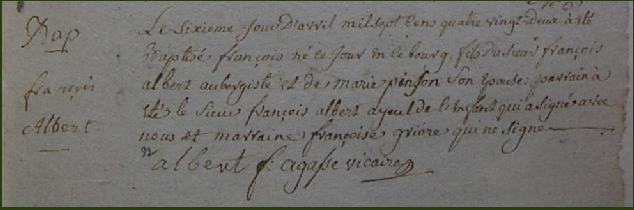 Bap
françois
Albert
Le Sixieme Jour D'avril mil sept Cens quatre vingt deux à été
Baptisé françois né ce Jour en le bourg, fils du sieur françois
albert aubergiste et de marie pinson son Epouse: parrain à
été le sieur françois albert ayeul de l'Enfant qui a signé avec
nous et marraine françoise griore qui ne signe
albert f. agassé vicaire